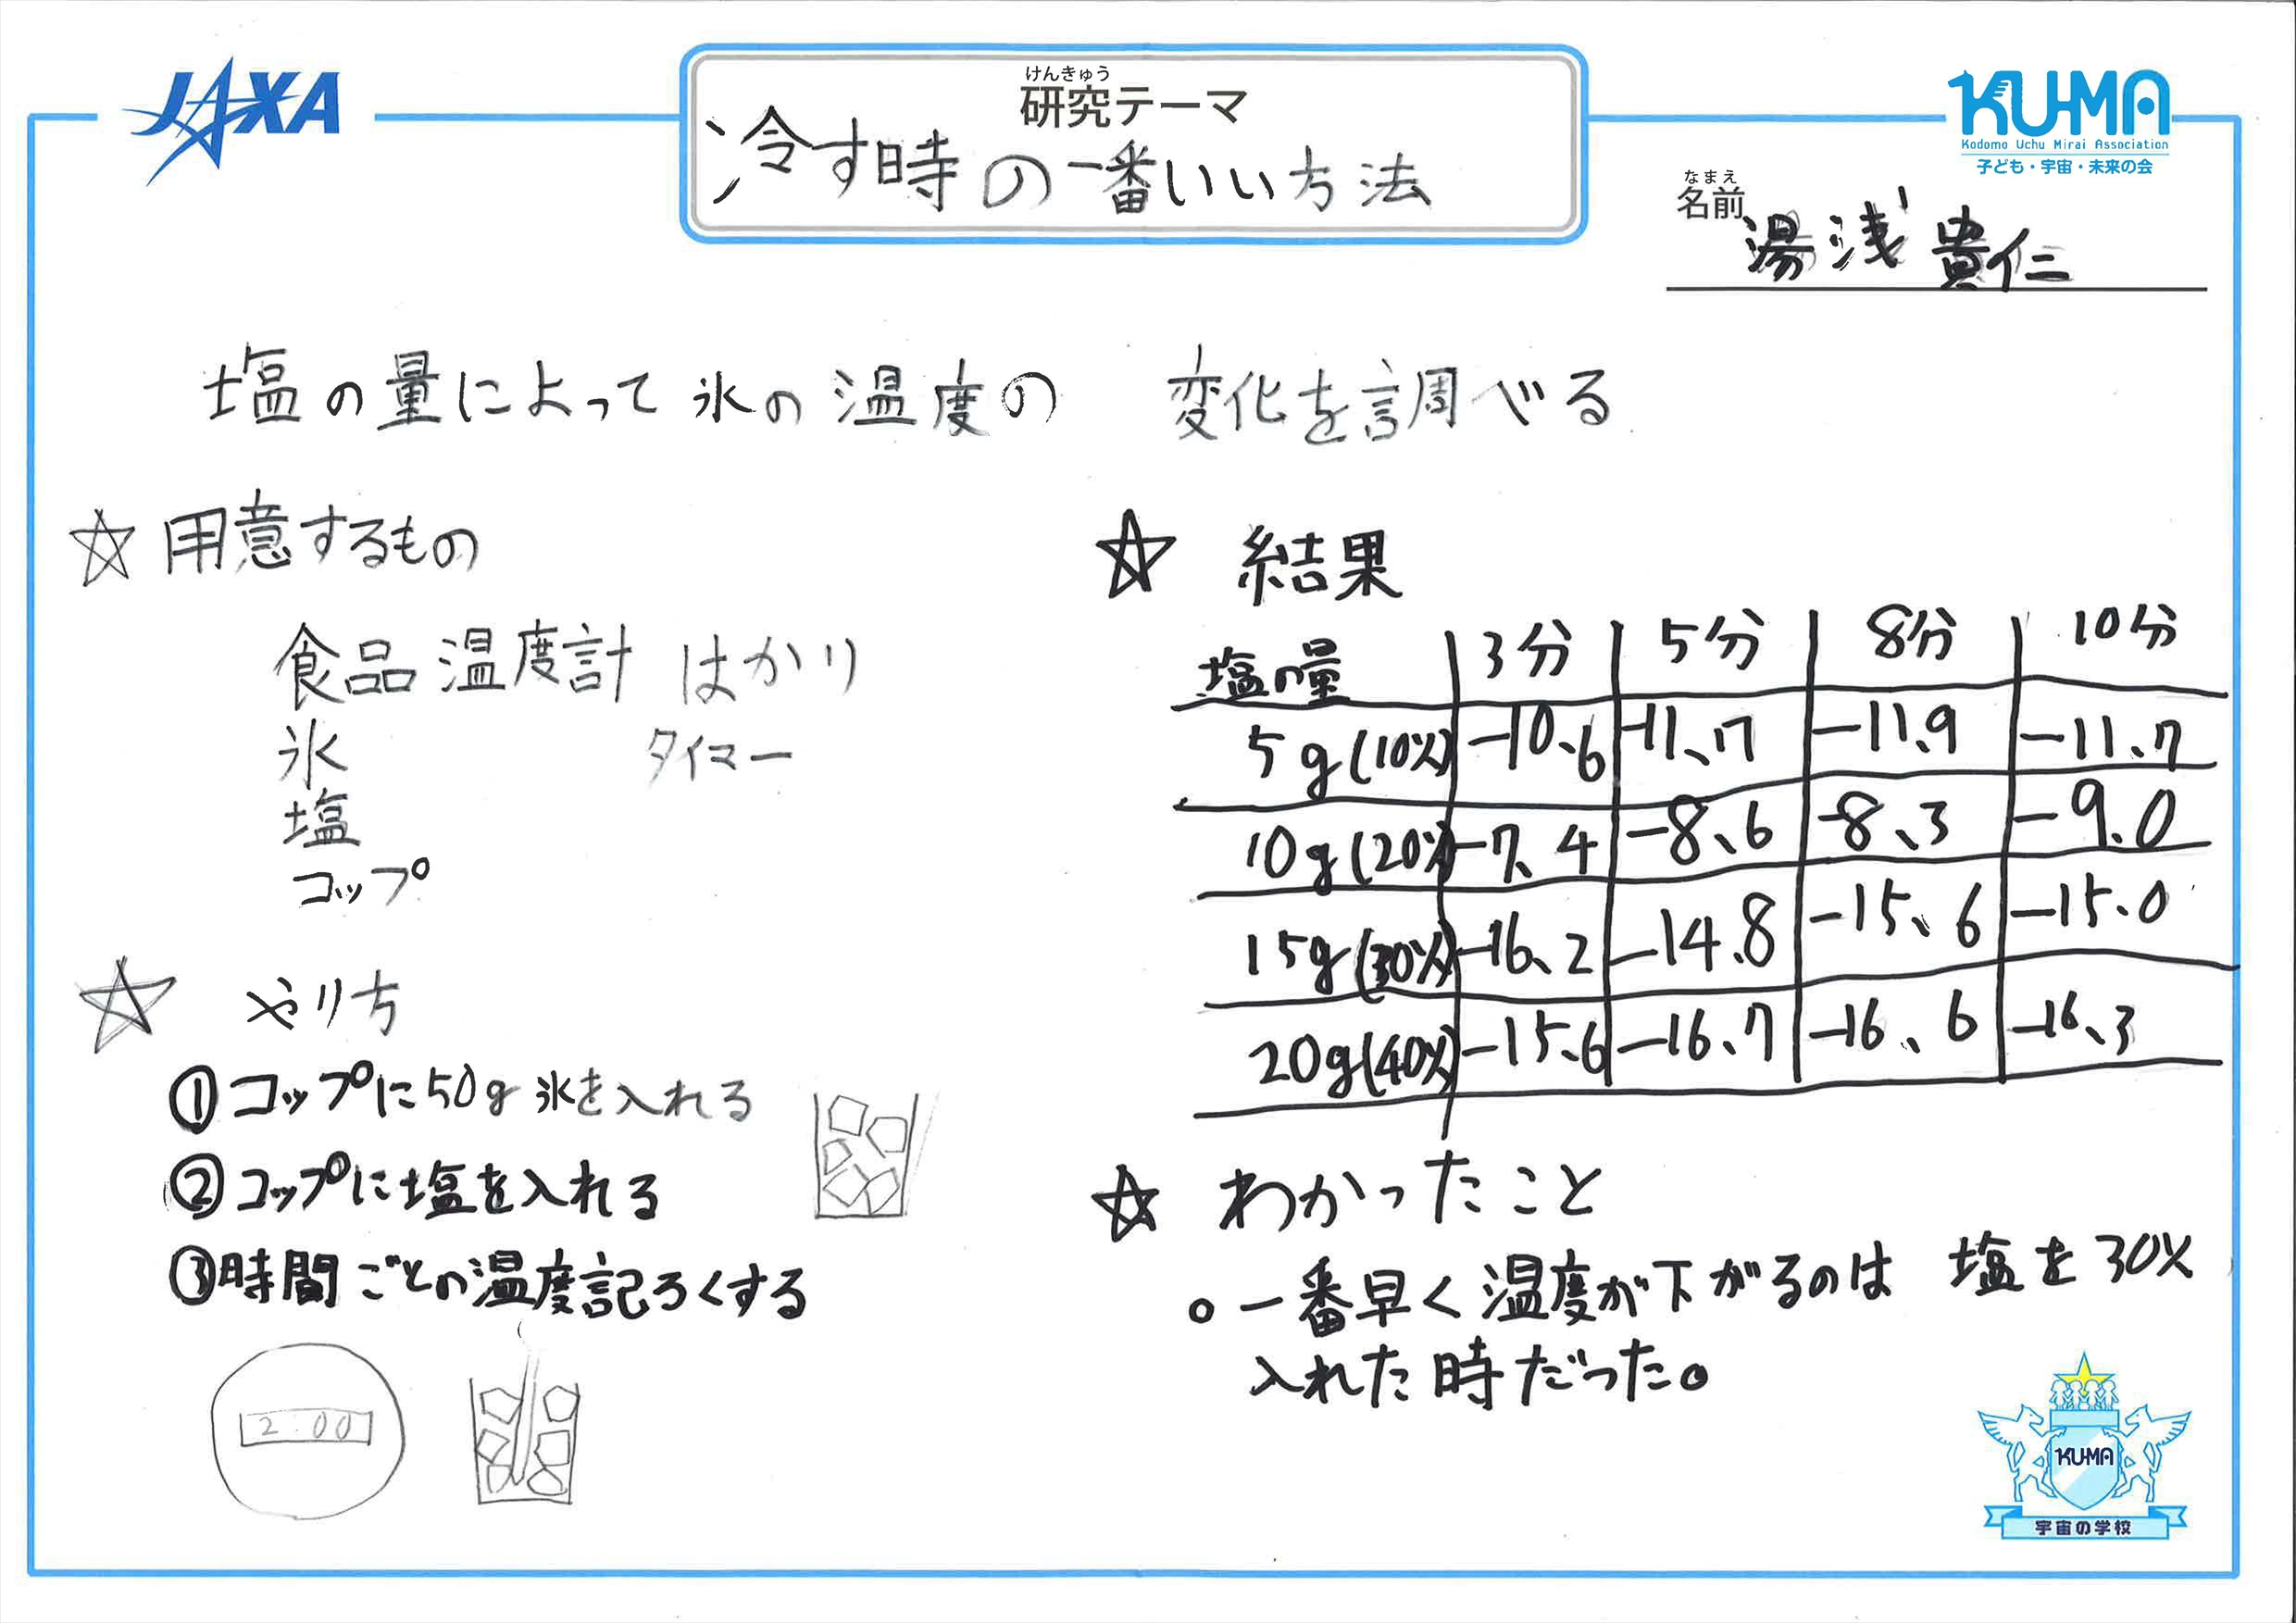 JAXA
けんきゅう
研究テーマ
冷す時の一番いい方法
KU-MA
Kodomo Uchu Mirai Association
子ども・宇宙・未来の会
なまえ
名前
湯浅貴仁
塩の量によって氷の温度の 変化を調べる
☆ 用意するもの
食品温度計 はかり
氷 タイマー
塩
コップ
☆ やり方
①コップに50g氷を入れる
②コップに塩を入れる
③時間ごとの温度記ろくする
2:00
☆ 結果
塩の量 3分 5分 8分 10分
5g(10%) -10、6 -11、7 -11、9 -11、7
10g(20%) -7、4 -8、6 -8、3 -9.0
15g(30%) -16、2 -14.8 -15、6 -15.0
20g(40%) -15、6 -16、7 -16、6 -16、3
☆ わかったこと
○一番早く温度が下がるのは 塩を30%
入れた時だった。
KU-MA
宇宙の学校